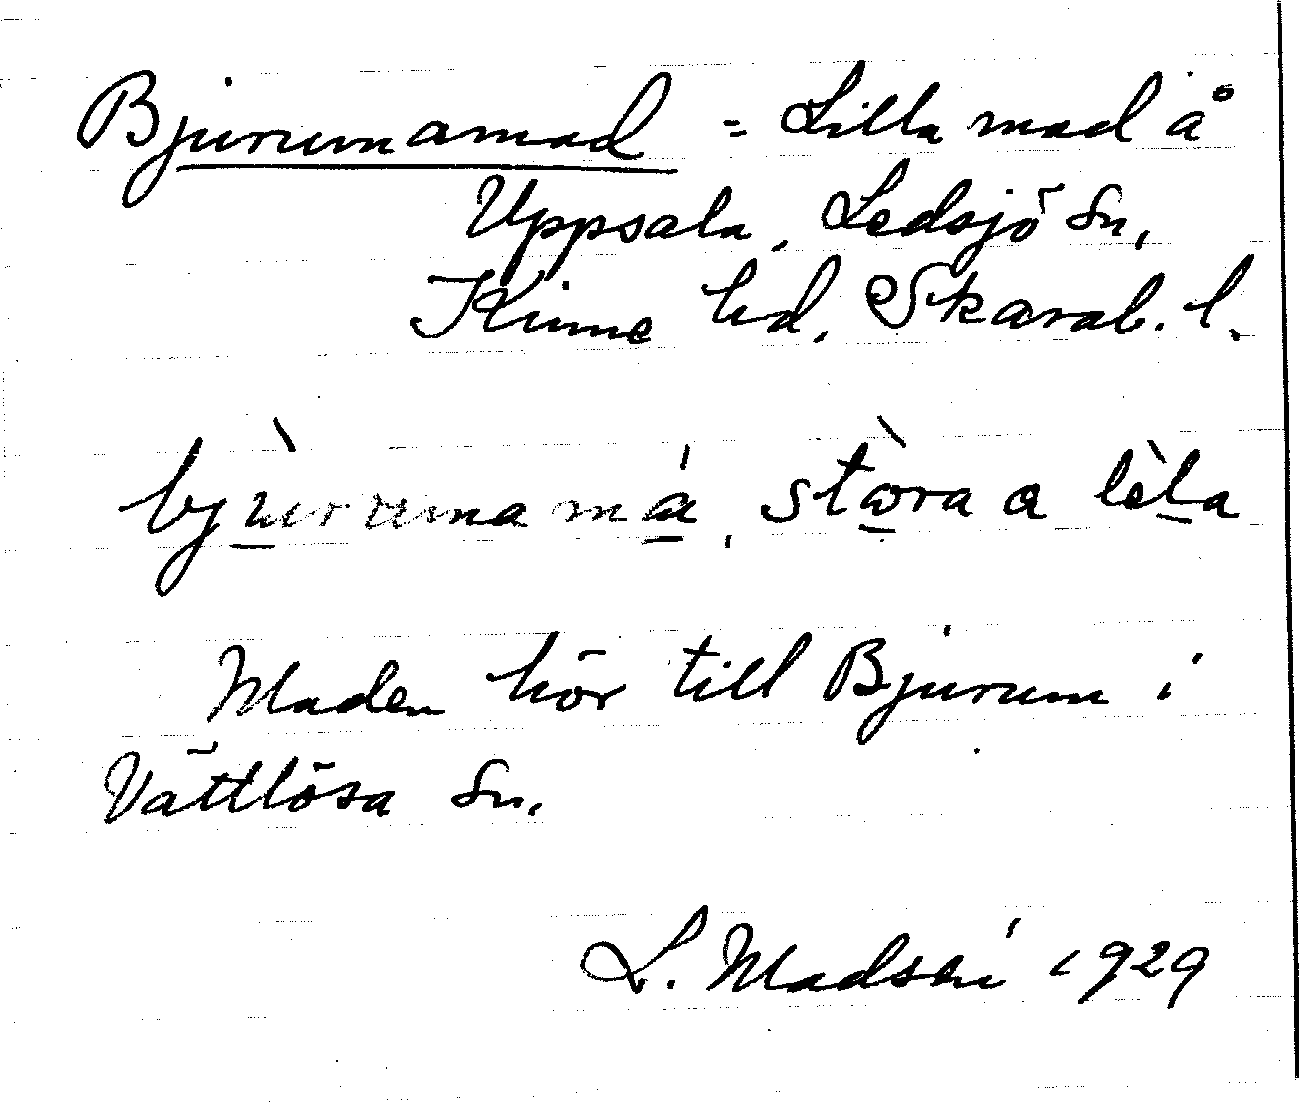 Bjurumamad = Lilla mad å
Uppsala, Ledsjö Sn,
Kinne hd. Skarab. l.
stὼra a lèla
Maden hör till Bjurum i
Vättlösa Sn.
L. Madsén 1929